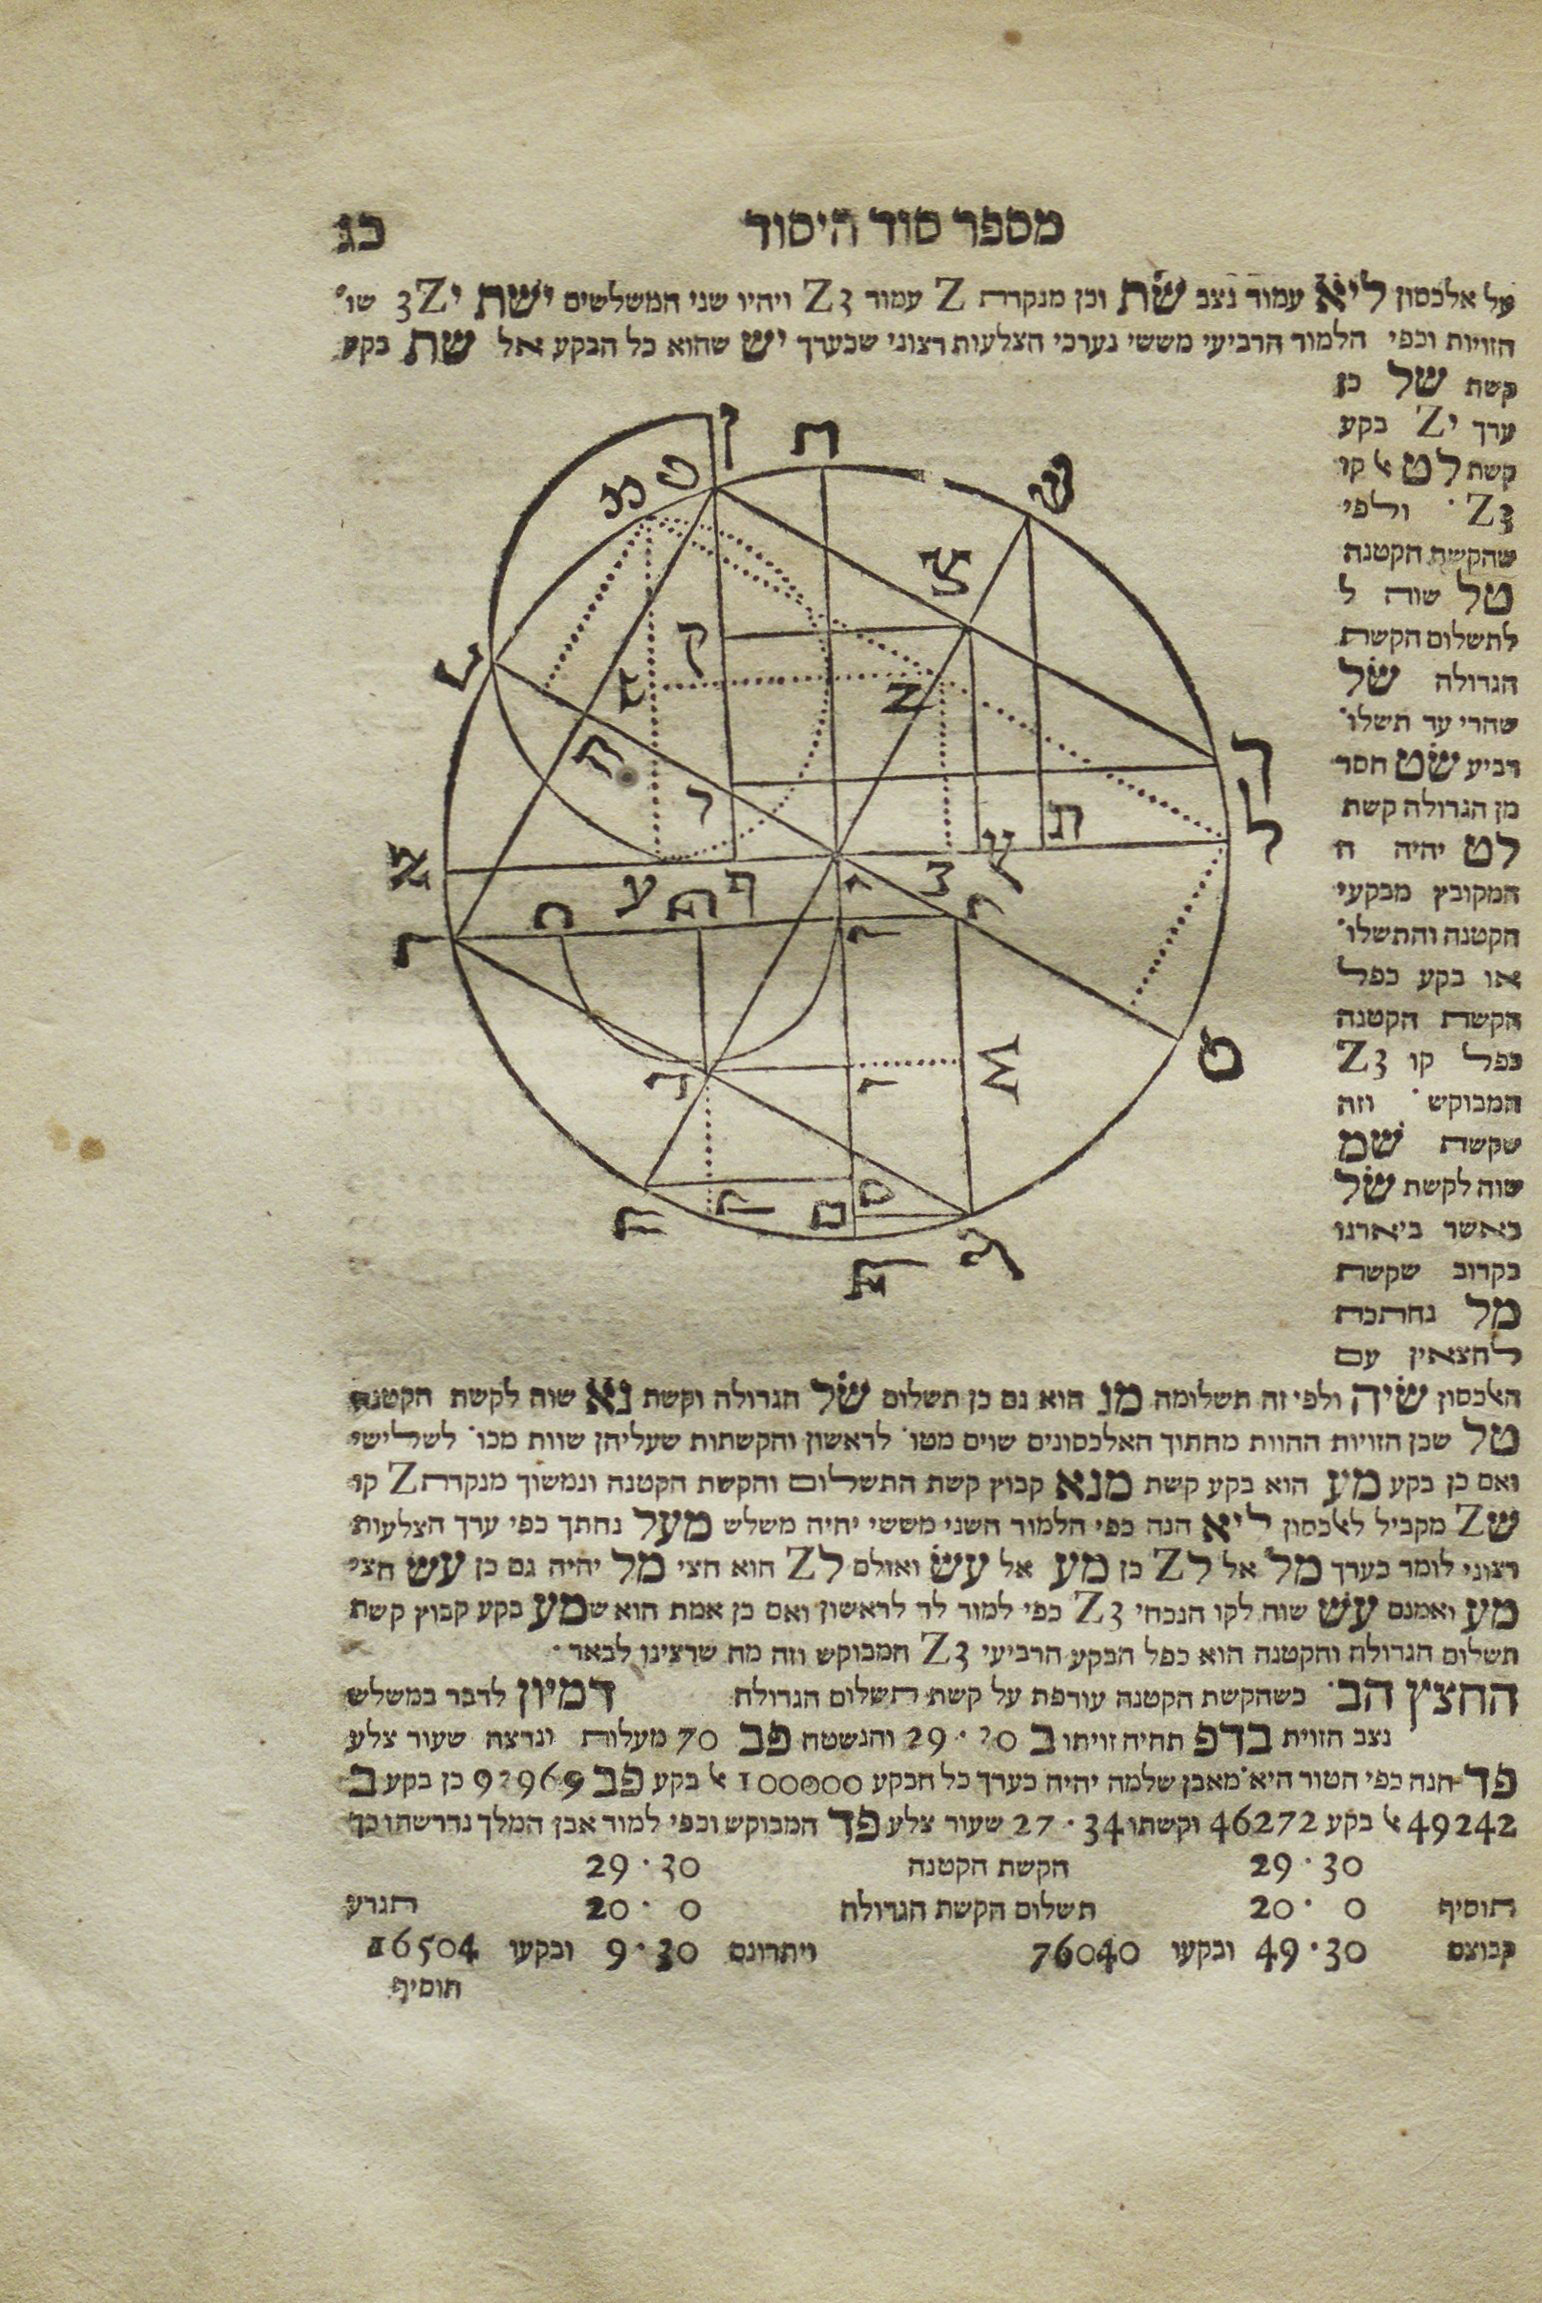 מספר סוד היסוד כג
על אלכסון ליא עמוד נצב שת וכן מנקדת Z עמוד Z3 ויהיו שני המשלשים ישת יZ3 שו'
הזויות וכפי הלמוד הרביעי מששי נערכי הצלעות רצוני שכערך יש שהוא כל הבקע אל שת בקע
קשת של כן
ערך יZ בקע
קשת לט אל קו
Z3 · ולפי
שהקשת הקטנה
טל שוה ל
לתשלום הקשת
הגדולה של
שהרי עד תשלו'
רביע שט חסר
מן הגדולה קשת
לט יהיה ח
המקובץ מבקעי
הקטנה והתשלו'
או בקע כפל
הקשת הקטנה
כפל קו Z3
המבוקש · וזה
שקשת שמ
שוה לקשת של
כאשר ביארנו
בקרוב שקשת
מל נחתכת
לחצאין עם
האלכסון שיה ולפי זה תשלומה מנ הוא גם כן תשלום של הגדולה וקשת נא שוה לקשת הקטנה
טל שכן הזויות ההוות מחתוך האלכסונים שוים מטו' לראשון והקשתות שעליהן שוות מכו' לשלישי
ואם כן בקע מע הוא בקע קשת מנא קבוץ קשת התשלום והקשת הקטנה ונמשוך מנקדת Z קו
שZ מקביל לאלכסון ליא הנה כפי הלמוד השני מששי יהיה משלש מעל נחתך כפי ערך הצלעות
רצוני לומר כערך מל אל לZ כן מע אל עש ואולם לZ הוא חצי מל יהיה גם כן עש חצי
מע ואמנם עש שוה לקו הנכחי Z3 כפי למוד לד לראשון ואם כן אמת הוא שמע בקע קבוץ קשת
תשלום הגדולה והקטנה הוא כפל הבקע הרביעי Z3 המבוקש וזה מה שרצינו לבאר ·
החצץ הב' כשהקשת הקטנה עודפת על קשת תשלום הגדולה דמיון לדבר במשלש
נצב הזוית בדפ תהיה זויתו ב 30 · 29 והנשטח פב 70 מעלות ונרצה שעור צלע
פד הנה כפי הטור הי"א מאבן שלמה יהיה כערך כל הבקע 100000 אל בקע פב 93969 כן בקע ב
49242 אל בקע 46272 וקשתו 34 · 27 שעור צלע פד המבוקש וכפי למוד אבן המלך נדרשהו כך
29 · 30 הקשת הקטנה 29 · 30
תוסיף 20 · 0 תשלום הקשת הגדולה 20 · 0 תגרע
קבוצם 49 · 30 ובקעו 76040 ויתרונם 9 · 30 ובקעו 16504
תוסיף
ן
ח
ש
פ
מ
צ
ק
ט
Z
ר
ל
ת
א
ע
ה
ף
י
3
ץ
ט
ד
ג
ה